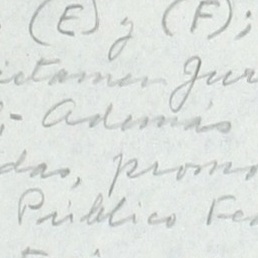 (E) y (F);
ictamen Jur
;- Además
das, promo
Público Fe